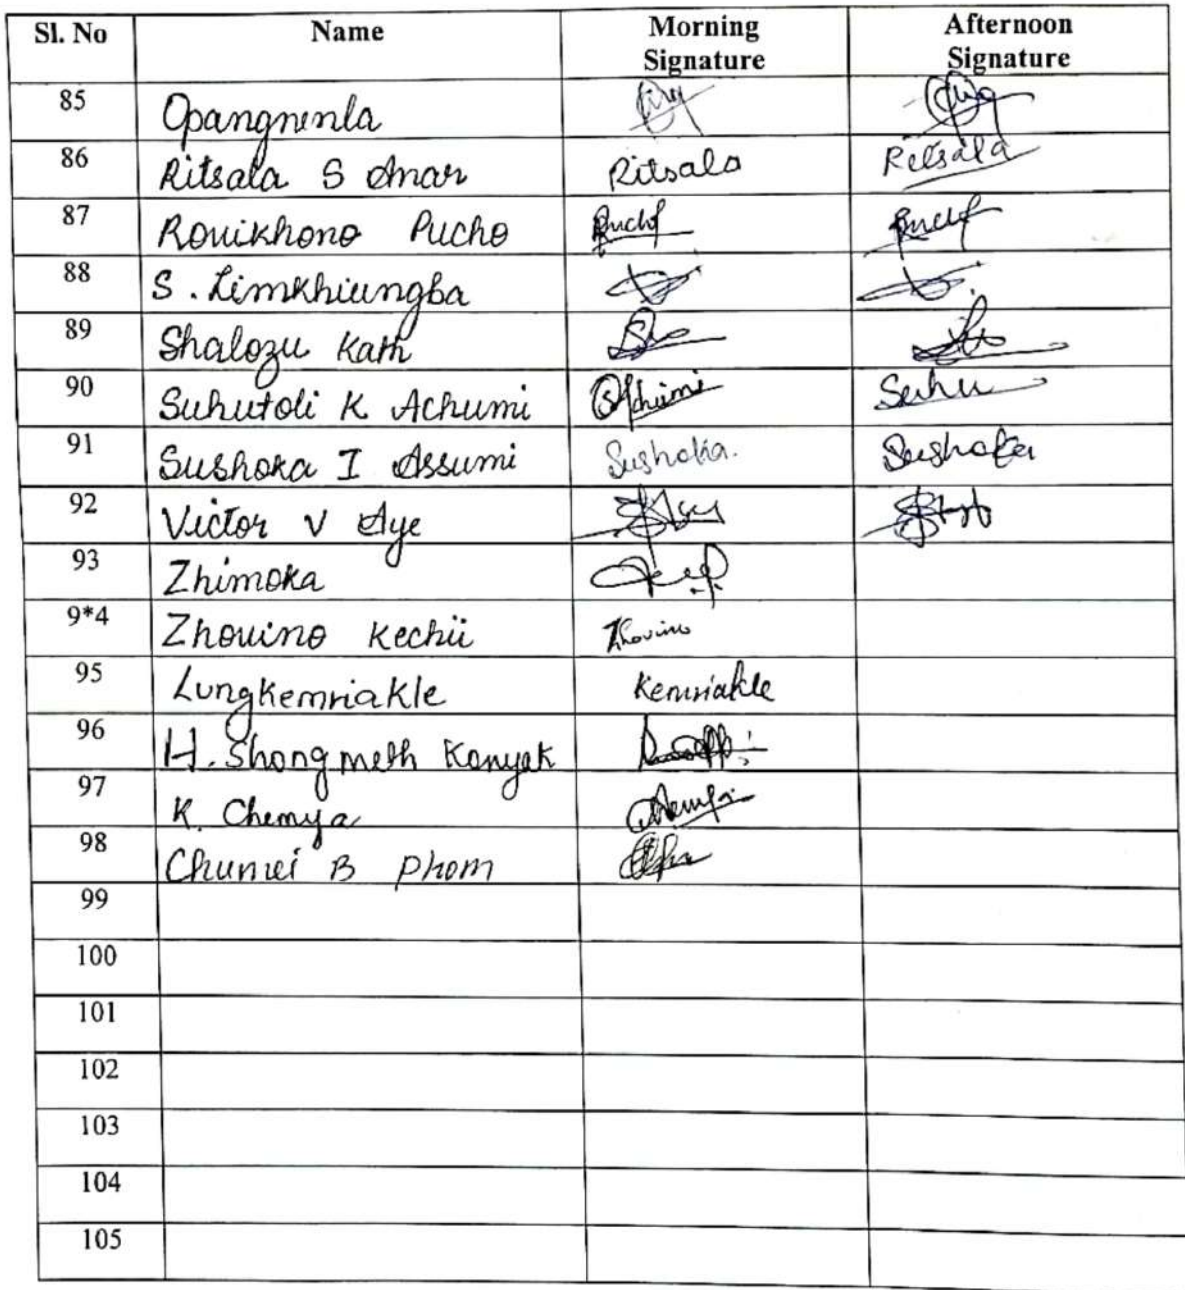 Sl. No Name Morning Signature Afternoon Signature
85 Opangnenla
86 Ritsala S Anar Ritsala Ritsala
87 Rovikhono Pucho
88 S. Limkhiungba
89 Shalozu Kath
90 Suhutoli K Achumi Achumi Suhu
91 Sushoka I Assumi Sushoka. Sushoka
92 Victor V Aye
93 Zhimoka
9*4 Zhovino Kechü Zhovino
95 Lungkemriakle Kemriakle
96 H. Shongmeth Konyak
97 K. Chemya Chemya
98 Chumei B Phom
99
100
101
102
103
104
105